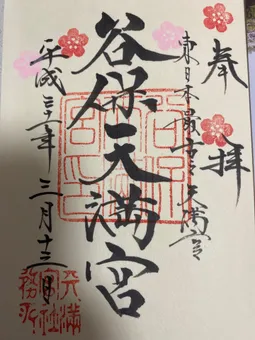 奉拝
東日本最古之天満宮
谷保天満宮
平成三十一年三月十三日
天満宮社務所